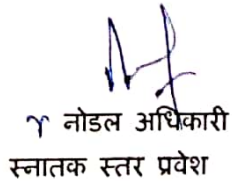 नोडल अधिकारी
स्नातक स्तर प्रवेश